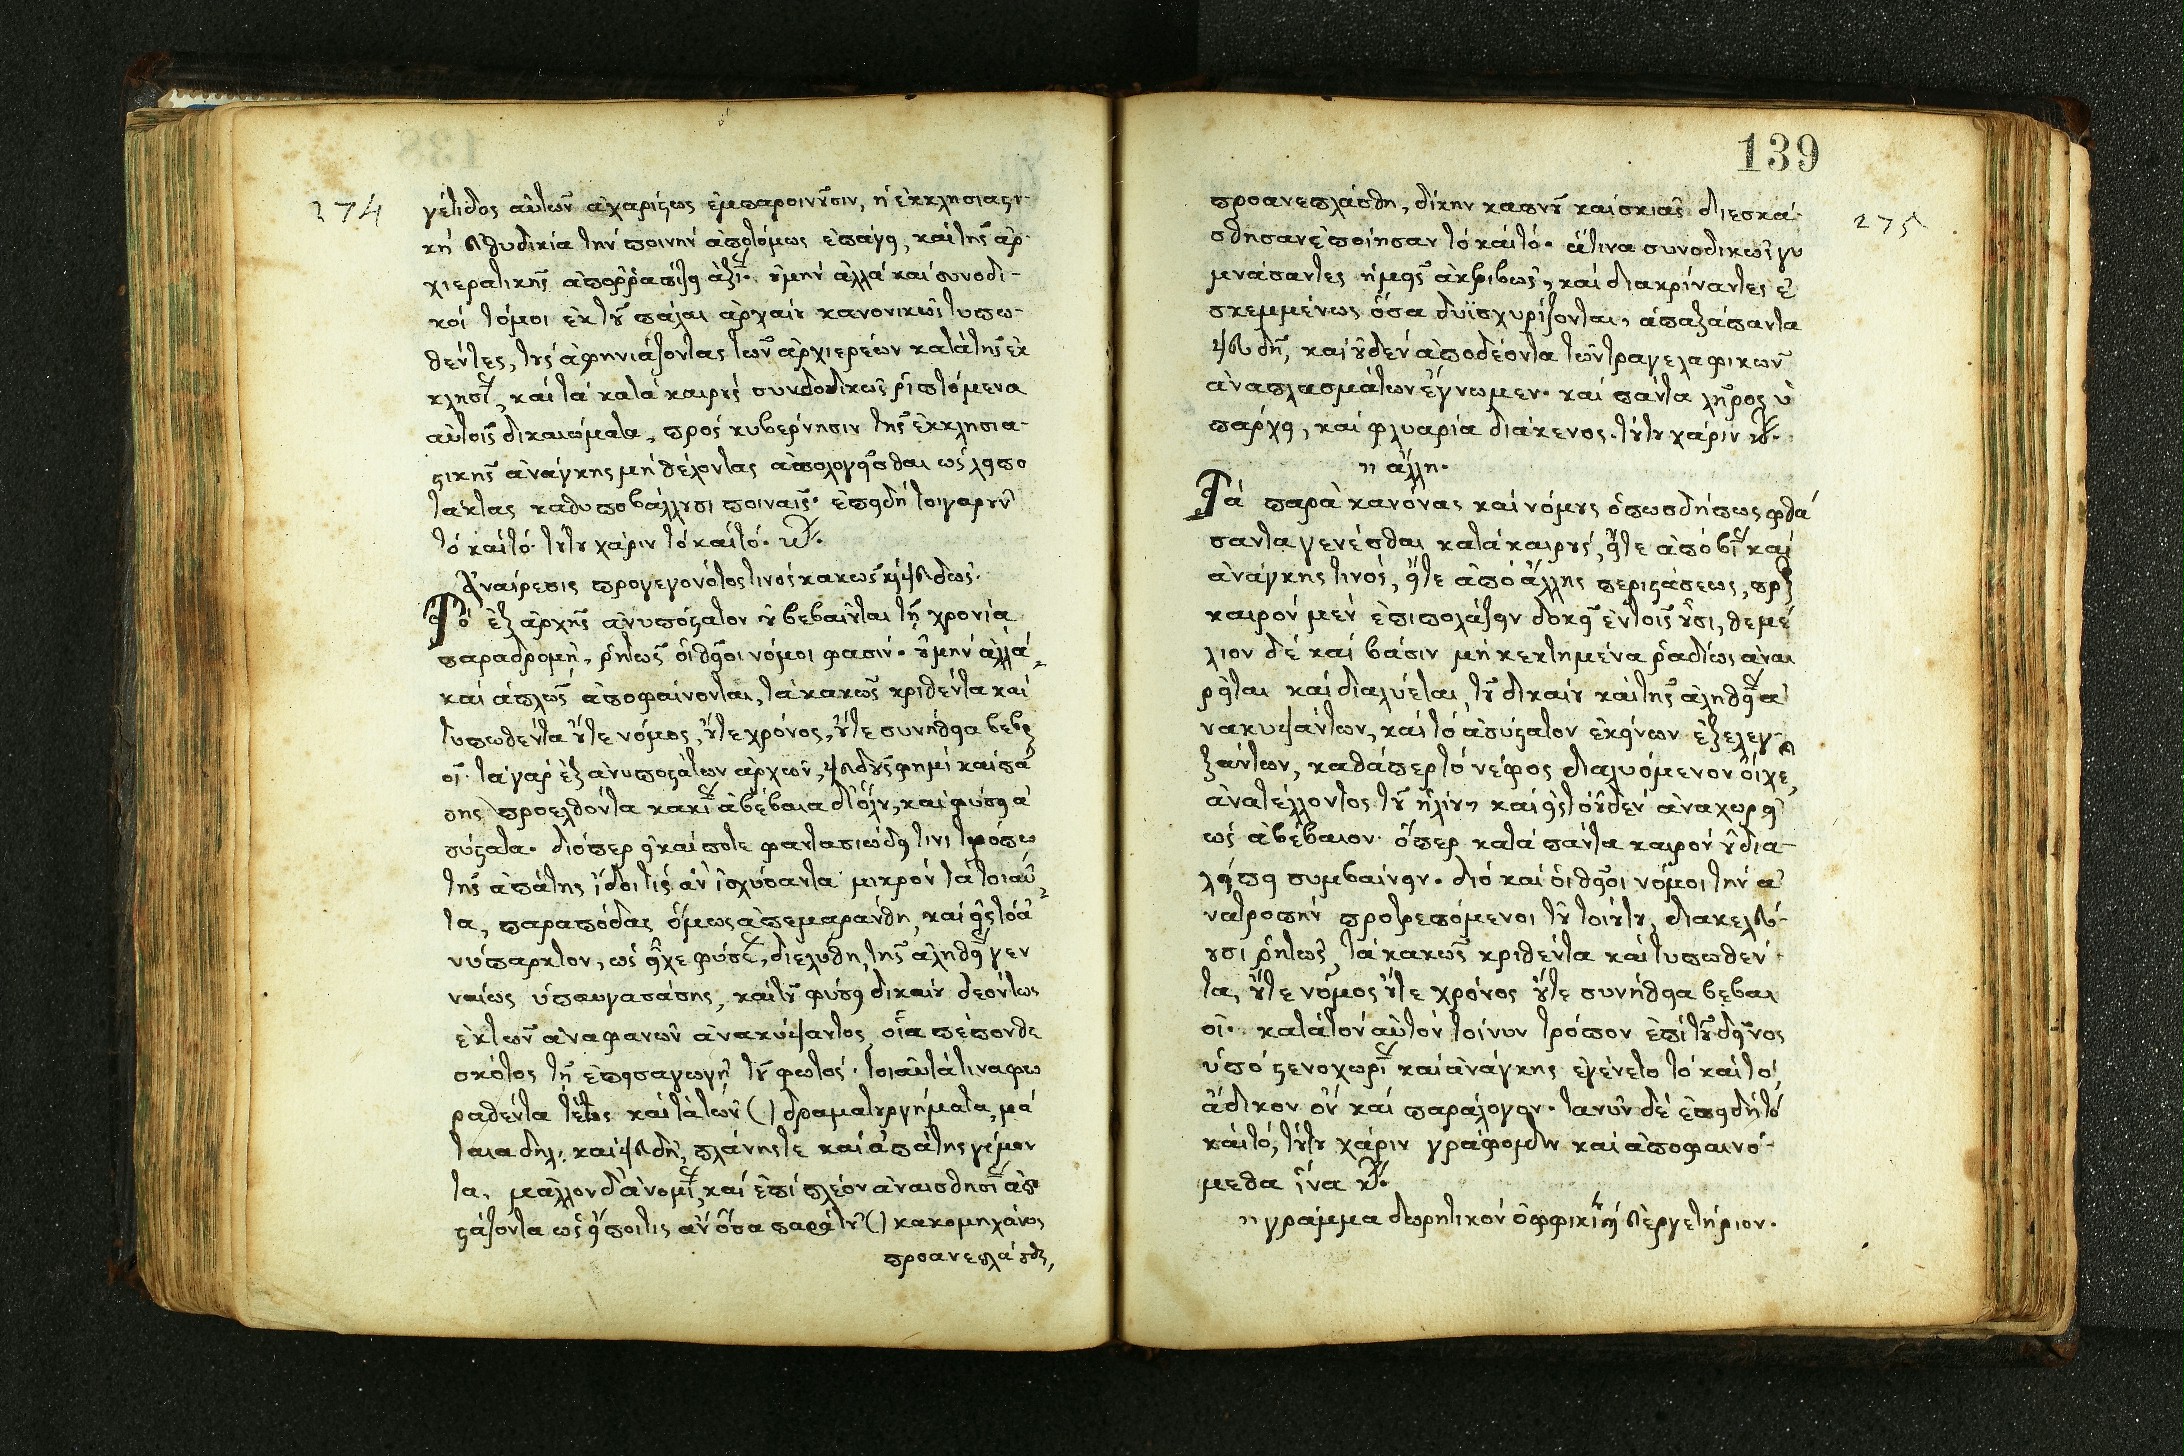 274
γέτιδος αὐτῶν ἀχαρίστως ἐμπαροινοῦσιν, ἡ ἐκκλησιαστι-
κὴ εὐθυδικία τὴν ποινὴν ἀποτόμως ἐπάγει, καὶ τῆς ἀρ-
χιερατικῆς ἀπορραπίζει ἀξί. οὐ μὴν ἀλλὰ καὶ συνοδι-
κοὶ τόμοι ἐκ τοῦ πάλαι ἀρχαίου κανονικῶς τυπω-
θέντες, τοὺς ἀφηνιάζοντας τῶν ἀρχιερέων κατὰ τῆς ἐκ
κλησί, καὶ τὰ κατὰ καιροὺς συνοδικῶς ῥιπτόμενα
αὐτοῖς δικαιώματα, πρὸς κυβέρνησιν τῆς ἐκκλησια-
στικῆς ἀνάγκης μὴ θέλοντας ἀπολογεῖσθαι ὡς λειπο
τάκτας καθυποβάλλουσι ποιναῖς. ἐπειδὴ τοιγαροῦν
τὸ καὶ τό. τούτου χάριν τὸ καὶ τό.
Ἀναίρεσις προγεγονότος τινὸς κακῶς κὶ ψευδῶς.
Τὸ ἐξ ἀρχῆς ἀνυπόστατον οὐ βεβαιοῦται τῇ χρονίᾳ
παραδρομῇ, ῥητῶς οἱ θεῖοι νόμοι φασίν. οὐ μὴν ἀλλὰ
καὶ ἁπλῶς ἀποφαίνονται, τὰ κακῶς κριθέντα καὶ
τυπωθέντα οὔτε νόμος, οὔτε χρόνος, οὔτε συνήθεια βεβαι
οῖ. τὰ γὰρ ἐξ ἀνυποστάτων ἀρχῶν, ψευδοῦς φημὶ καὶ πά
σης προελθόντα κακί ἀβέβαια δι' ὅλου, καὶ φύσει ἀ
σύστατα. διόπερ εἰ καί ποτε φαντασιώδει τινὶ τρόπῳ
τῆς ἀπάτης ἴδοι τὶς ἂν ἰσχύσαντα μικρὸν τὰ τοιαῦ
τα, παραπόδας ὅμως ἀπεμαράνθη, καὶ εἰς τὸ ἀ
νύπαρκτον, ὡς εἶχε φύσε, διελύθη, τῆς ἀληθεί γεν
ναίως ὑπαυγασάσης, καὶ τοῦ φύσει δικαίου δεόντως
ἐκ τῶν ἀναφανῶν ἀνακύψαντος, οἷα πέπονθε
σκότος τῇ ἐπεισαγωγῇ τοῦ φωτός. τοιαῦτά τινα φω
ραθέντα τέως καὶ τὰ τῶν () δραματουργήματα, μά
ταια δηλ. καὶ ψευδῆ, πλάνης τε καὶ ἀπάτης γέμον
τα, μᾶλλον δ' ἀνομί, καὶ ἐπὶ πλέον ἀναισθησί ἀπο
στάζοντα ὡς εἴποι τις ἂν ὅσα παρὰ τοῦ () κακομηχάνως
προανεπλάσθη,
139
275
προανεπλάσθη, δίκην καπνοῦ καὶ σκιᾶς διεσκά-
σθησαν ἐποίησαν τὸ καὶ τό. ἅτινα συνοδικῶς γυ
μνάσαντες ἡμεῖς ἀκριβῶς, καὶ διακρίναντες ἐ
σκεμμένως ὅσα διϊσχυρίζονται, ἅπαξάπαντα
ψευδῆ, καὶ οὐδὲν ἀποδέοντα τῶν τραγελαφικῶν
ἀναπλασμάτων ἔγνωμεν. καὶ πάντα λῆρος ὑ
πάρχει, καὶ φλυαρία διάκενος. τούτου χάριν κτ.
" ἄλλη.
Τὰ παρὰ κανόνας καὶ νόμους ὁπωσδήπως φθά
σαντα γενέσθαι κατὰ καιρούς, εἴτε ἀπὸ βί καὶ
ἀνάγκης τινός, εἴτε ἀπὸ ἄλλης περιστάσεως, πρὸς
καιρὸν μὲν ἐπιπολάζειν δοκεῖ ἐν τοῖς οὖσι, θεμέ
λιον δὲ καὶ βάσιν μὴ κεκτημένα ῥᾳδίως ἀναι
ρεῖται καὶ διαλύεται, τοῦ δικαίου καὶ τῆς ἀληθεί ἀ
νακυψάντων, καὶ τὸ ἀσύστατον ἐκείνων ἐξελεγ-
ξάντων, καθάπερ τὸ νέφος διαλυόμενον οἴχε,
ἀνατέλλοντος τοῦ ἡλίου, καὶ εἰς τὸ οὐδὲν ἀναχωρεῖ
ὡς ἀβέβαιον. ὅπερ κατὰ πάντα καιρὸν οὐ δια-
λείπει συμβαίνειν. διὸ καὶ οἱ θεῖοι νόμοι τὴν ἀ
νατροπὴν προτρεπόμενοι τοῦ τοιούτου, διακελεύ-
ουσι ῥητῶς, τὰ κακῶς κριθέντα καὶ τυπωθέν-
τα, οὔτε νόμος οὔτε χρόνος οὔτε συνήθεια βεβαι
οῖ. κατὰ τὸν αὐτὸν τοίνυν τρόπον ἐπὶ τοῦ δεῖνος
ὑπὸ στενοχωρί καὶ ἀνάγκης ἐγένετο τὸ καὶ τό,
ἄδικον ὂν καὶ παράλογον. τανῦν δὲ ἐπειδὴ τὸ
καὶ τό, τούτου χάριν γράφομεν καὶ ἀποφαινό-
μεθα ἵνα κτ.
" γράμμα δωρητικὸν ὀφφικί ἢ εὐεργετήριον.